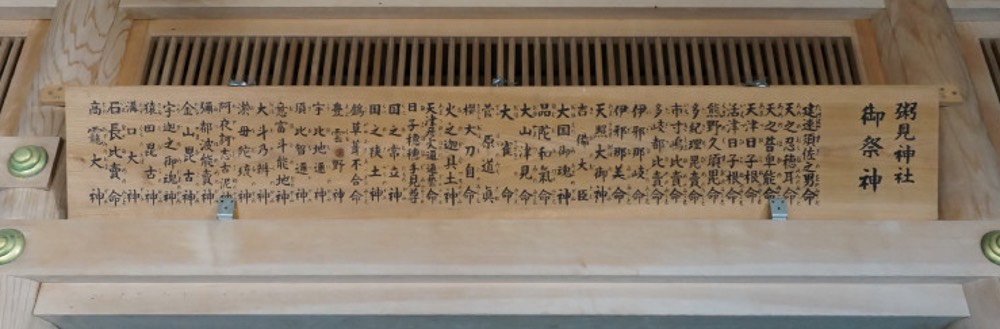 粥見神社
御祭神
建速須佐之男命
天之忍穂耳命
天之菩卑能命
天津日子根命
活津日子根命
熊野久須毘命
多紀理毘賣命
市寸嶋比賣命
多岐都比賣命
伊邪那岐命
伊邪那美命
天照大御神
大臣
大国御魂神
品陀和氣命
大山津見命
大雀命
菅原道真
櫻大刀自命
火之迦具土神
日子穂穂手見命
国之常立神
国之狭土神
鵜草葺不合命
豊雲野神
宇比地邇神
須比智邇神
意富斗能地神
大斗乃辨神
淤母陀琉神
阿夜訶志古泥神
彌都波能賣神
金山毘古神
宇迦之御魂神
猿田毘古神
溝口大神
石長比賣命
高龗大神